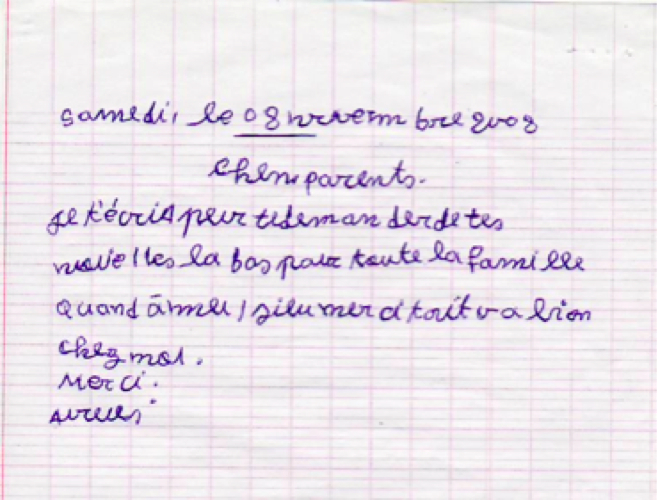 samedi, le 08 novembre 2008
Cher parents.
je t'écris pour te demander de tes
nouvelles la bas pour toute la famille
quand à moi, Dieu merci tout va bien
chez moi.
Merci.